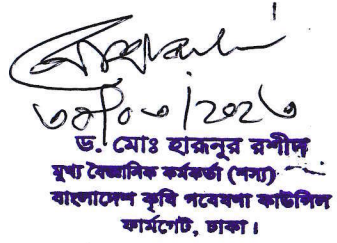 ড. মোঃ হারুনুর রশীদ
মুখ্য বৈজ্ঞানিক কর্মকর্তা (শস্য)
বাংলাদেশ কৃষি গবেষণা কাউন্সিল
ফার্মগেট, ঢাকা।